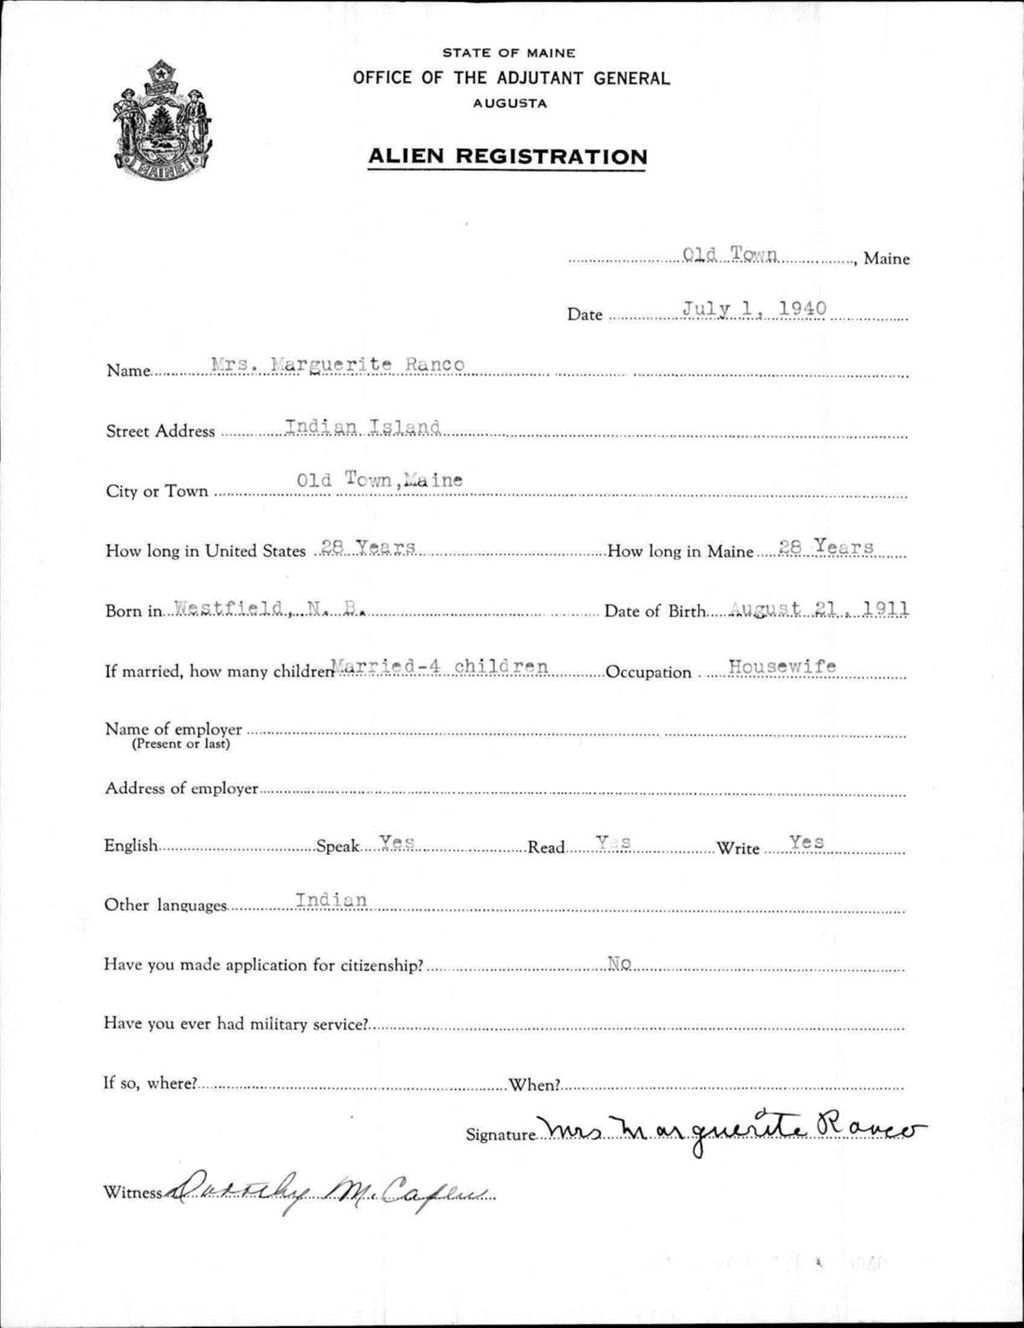 STATE OF MAINE
OFFICE OF THE ADJUTANT GENERAL
AUGUSTA
ALIEN REGISTRATION
MAINE
Old Town, Maine
Date July 1, 1940
Name Mrs. Marguerite Ranco
Street Address Indian Island
City or Town Old Town,Maine
How long in United States 28 Years How long in Maine 28 Years
Born in Westfield, N. B. Date of Birth August 21, 1911
If married, how many children Married-4 children Occupation Housewife
Name of employer
(Present or last)
Address of employer
English Speak Yes Read Yes Write Yes
Other languages Indian
Have you made application for citizenship? No
Have you ever had military service?
If so, where? When?
Signature Mrs Marguerite Ranco
Witness Dorothy M.